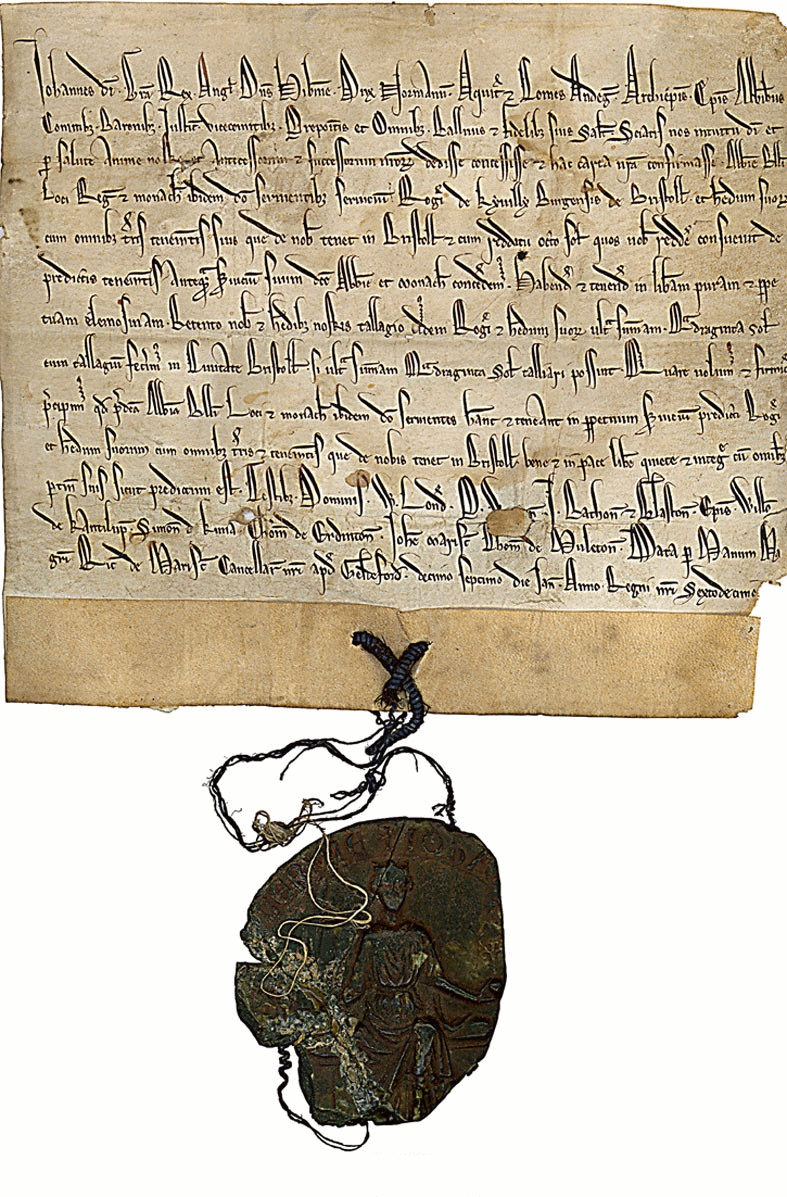 Johannes di. Gra. Rex Angl. Dns Hibnie. Dux Normann. Aquit. & Comes Andeg. Archiepis. Epis. Abbibus
Comitibz. Baronibz. Justic. vicecomitibz. Prepositis et Omnibz. Ballivis & fidelibz suis Salt. Sciatis nos intuitu di et
p salute anime nostre et Antecessorum & successorum nrorum dedisse concessisse & hac carta nra confirmasse. Abbie Belli
Loci Reg. & monach ibidem do servientibz servicium Rogi de Burgensis de Bristoll. et hedum suorum
cum omnibz tris tenementis suis que de nob tenet in Bristoll & cum redditu octo sol quos nob redde consuevit de
predictis tenementis Anteq Suicium suum dce Abbie et monach concedem. Habend & tenend in libam puram et ppe
tuam elemosinam. Retento nob & hedibz nostris tallagio idem Rogi & hedum suor ult summam. Quadraginta sol
cum tallagium fecim in Civitate Bristoll. si ult summam Quadraginta Sol talliari possint Quare volum & firmi
pcipim qd pdca Abbia Belli Loci & monach ibidem do servientes hant & teneant in ppetuum Suicium predicti Rogi
et hedum suorum cum omnibz tris & tenementis que de nobis tenet in Bristoll bene & in pace libe quiete & integ cu omibz
ptin suis sicut predictum est. Testibz. Dominis. W. Lond. P. J. Bathon & Glaston. Epis. Willo
de Kantilup. Simon d Thom de Erdinton. Joh Marisc. Thom de Data p Manum Ma
gri Ric de Marisc Cancellar nri apd Geldeford. decimo septimo die Jan. Anno. Regni nri Sextodecimo